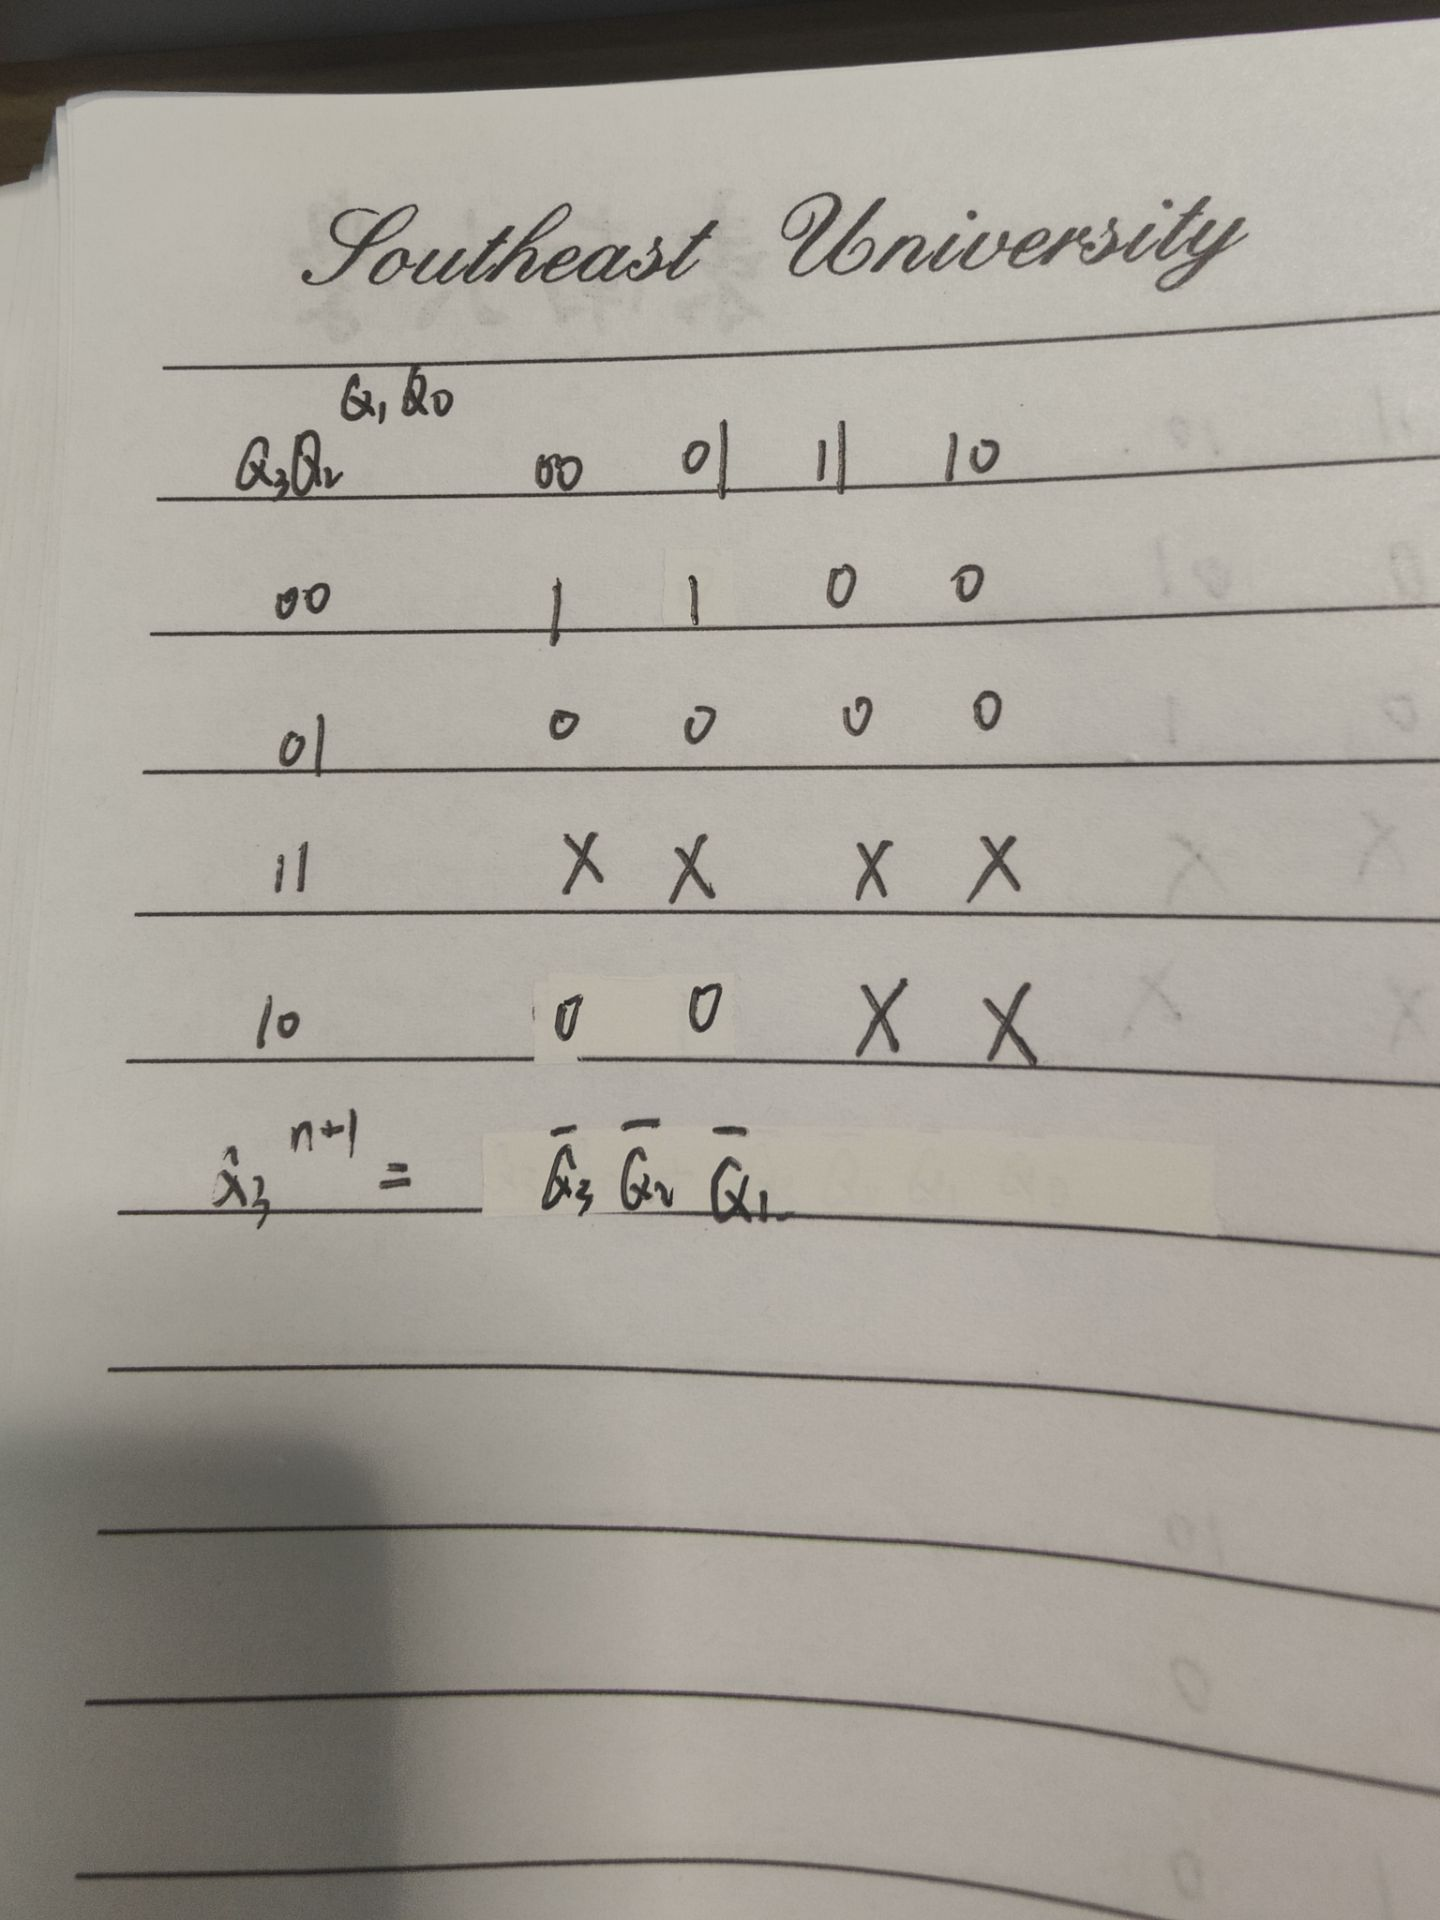 Southeast University
Q₁ Q₀
Q₃Q₂ 00 01 11 10
00 1 1 0 0
01 0 0 0 0
11 X X X X
10 0 0 X X
Q₃ⁿ⁺¹ = Q̄₃ Q̄₂ Q̄₁